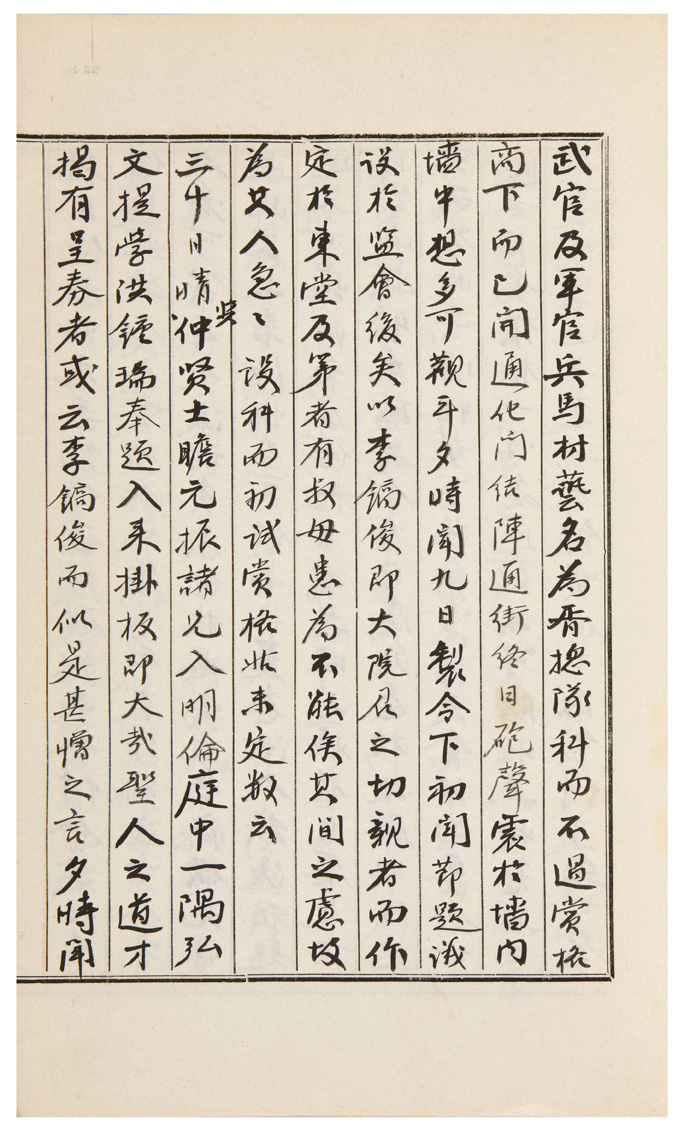 武官及軍官兵馬材藝名為胥摠隊科而不過賞格
高下而已開通化門結陣通街終日砲聲震於墻內
墻中想多可觀耳夕時聞九日製令下初聞節題議
設於監會後矣以李鎬俊即大院君之切親者而作
定於東堂及第者有叔母患為不能俟其間之慮故
為其人急〻設科而初試賞格姑未定數云
三十日晴與仲賢士瞻元振諸兄入明倫庭中一隅弘
文提學洪鍾瑞奉題入来掛板即大哉聖人之道才
揭有呈券者或云李鎬俊而似是甚憎之言夕時聞